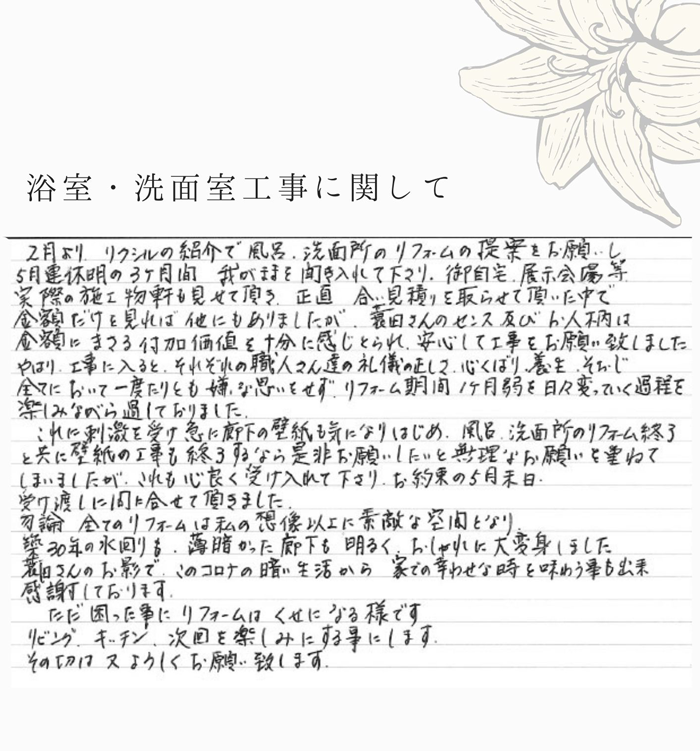 浴室・洗面室工事に関して
2月より、リクシルの紹介で風呂、洗面所のリフォームの提案をお願いし
5月連休明の3ケ月間 我がままを聞き入れて下さり、御自宅、展示会場等
実際の施工物軒も見せて頂き、正直 合い見積りを取らせて頂いた中で
金額だけを見れば他にもありましたが、蓑田さんのセンス及びお人柄は
金額にまさる付加価値を十分に感じとられ、安心して工事をお願い致しました
やはり、工事に入ると、それぞれの職人さん達の礼儀の正しさ、心くばり、養生、そおじ
全てにおいて一度たりとも嫌な思いをせず、リフォーム期間1ケ月弱を日々変っていく過程を
楽しみながら過しておりました。
これに刺激を受け急に廊下の壁紙も気になりはじめ、風呂、洗面所のリフォーム終了
と共に壁紙の工事も終了するなら是非お願いしたいと無理なお願いを重ねて
しまいましたが、これも心良く受け入れて下さり、お約束の5月末日、
受け渡しに間に合せて頂きました。
勿論 全てのリフォームは私の想像以上に素敵な空間となり、
築30年の水回りも、薄暗かった廊下も 明るく、おしゃれに大変身しました
蓑田さんのお影で、このコロナの暗い生活から 家での幸わせな時を味わう事も出来
感謝しております。
ただ困った事に リフォームは くせになる様です
リビング、キッチン、次回を楽しみにする事にします。
その切は又よろしくお願い致します。